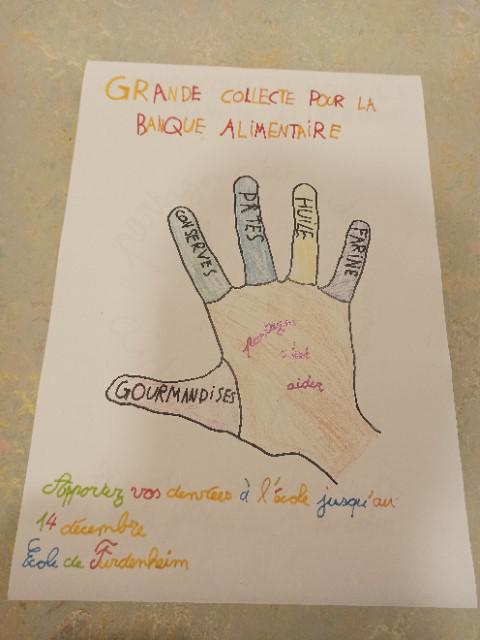 GRANDE COLLECTE POUR LA
BANQUE ALIMENTAIRE
CONSERVES
PÂTES
HUILE
FARINE
partager
c'est
aider
GOURMANDISES
Apportez vos denrées à l'école jusqu'au
14 décembre
École de Furdenheim